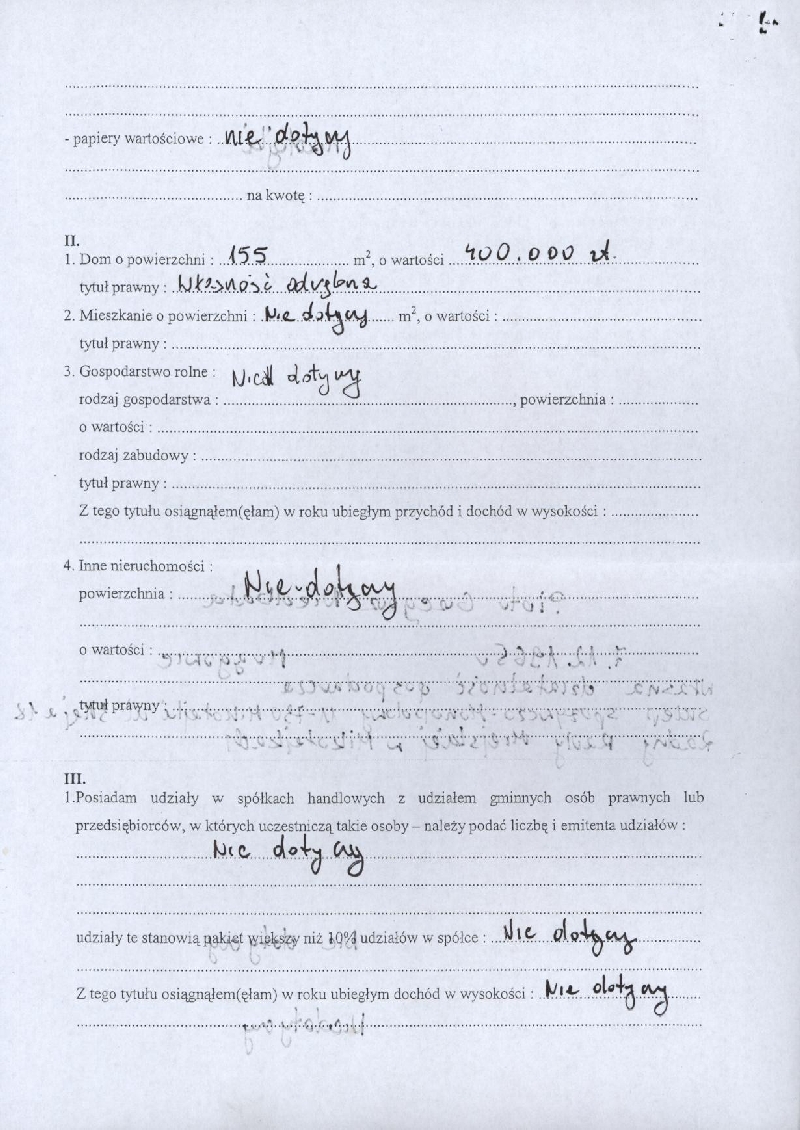 - papiery wartościowe : nie dotyczy
na kwotę :
II.
1. Dom o powierzchni : 155 m², o wartości 400.000 zł.
tytuł prawny : Własność
2. Mieszkanie o powierzchni : Nie dotyczy m², o wartości :
tytuł prawny :
3. Gospodarstwo rolne : Nie dotyczy
rodzaj gospodarstwa : , powierzchnia :
o wartości :
rodzaj zabudowy :
tytuł prawny :
Z tego tytułu osiągnąłem(ęłam) w roku ubiegłym przychód i dochód w wysokości :
4. Inne nieruchomości :
powierzchnia : Nie dotyczy
o wartości :
tytuł prawny :
III.
1.Posiadam udziały w spółkach handlowych z udziałem gminnych osób prawnych lub
przedsiębiorców, w których uczestniczą takie osoby – należy podać liczbę i emitenta udziałów :
Nie dotyczy
udziały te stanowią pakiet większy niż 10% udziałów w spółce : Nie dotyczy
Z tego tytułu osiągnąłem(ęłam) w roku ubiegłym dochód w wysokości : Nie dotyczy